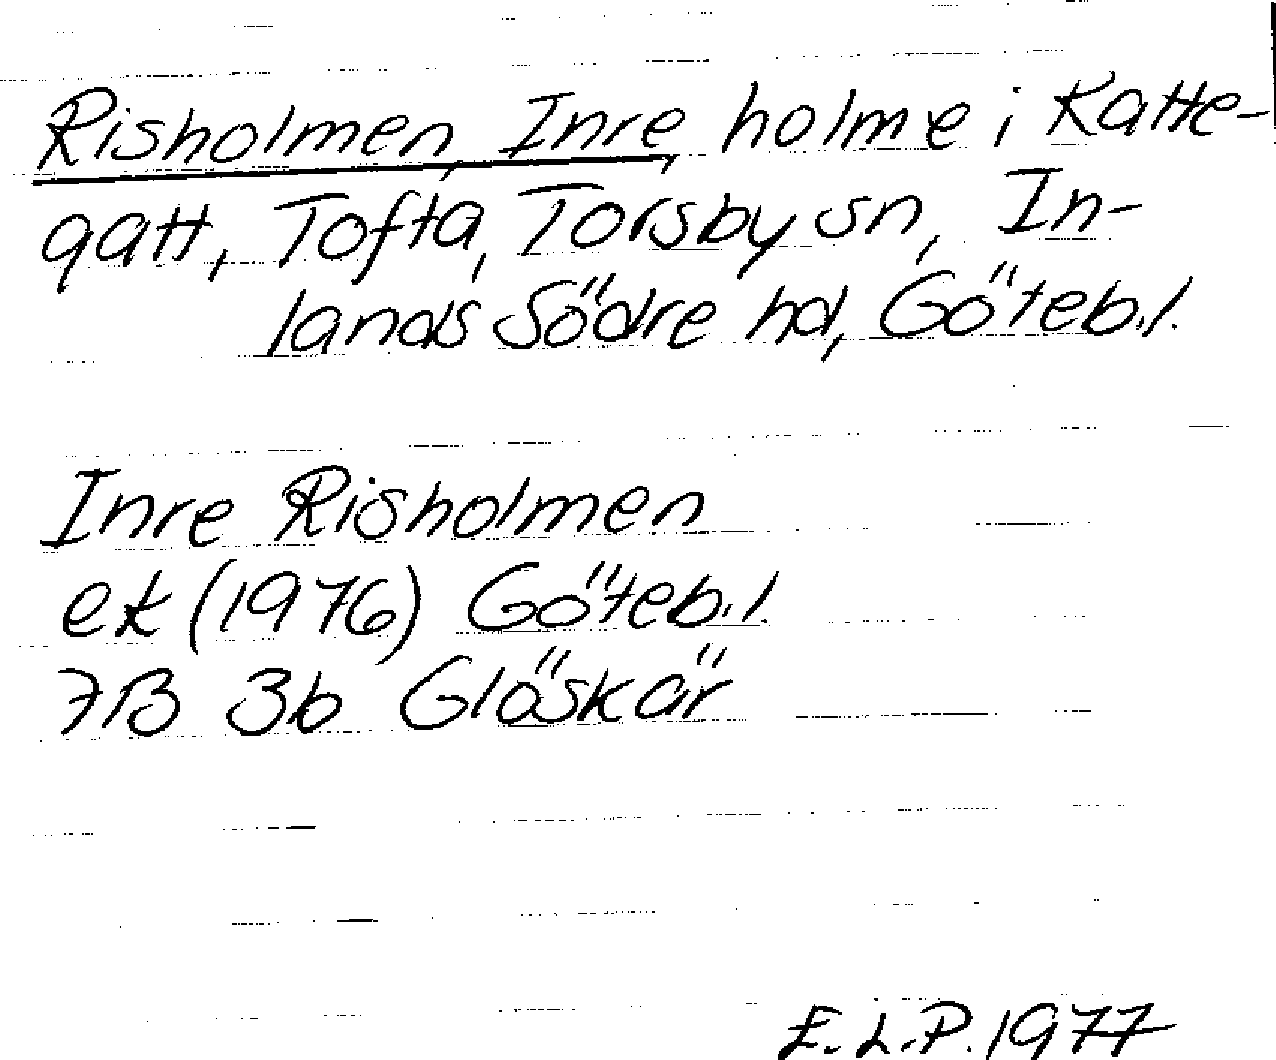 Risholmen, Inre, holme i Katte-
gatt, Tofta, Torsby sn, In-
lands Södre hd, Göteb.l.
Inre Risholmen
ek (1976) Göteb.l.
7B 3b Glöskär
E.L.P. 1977